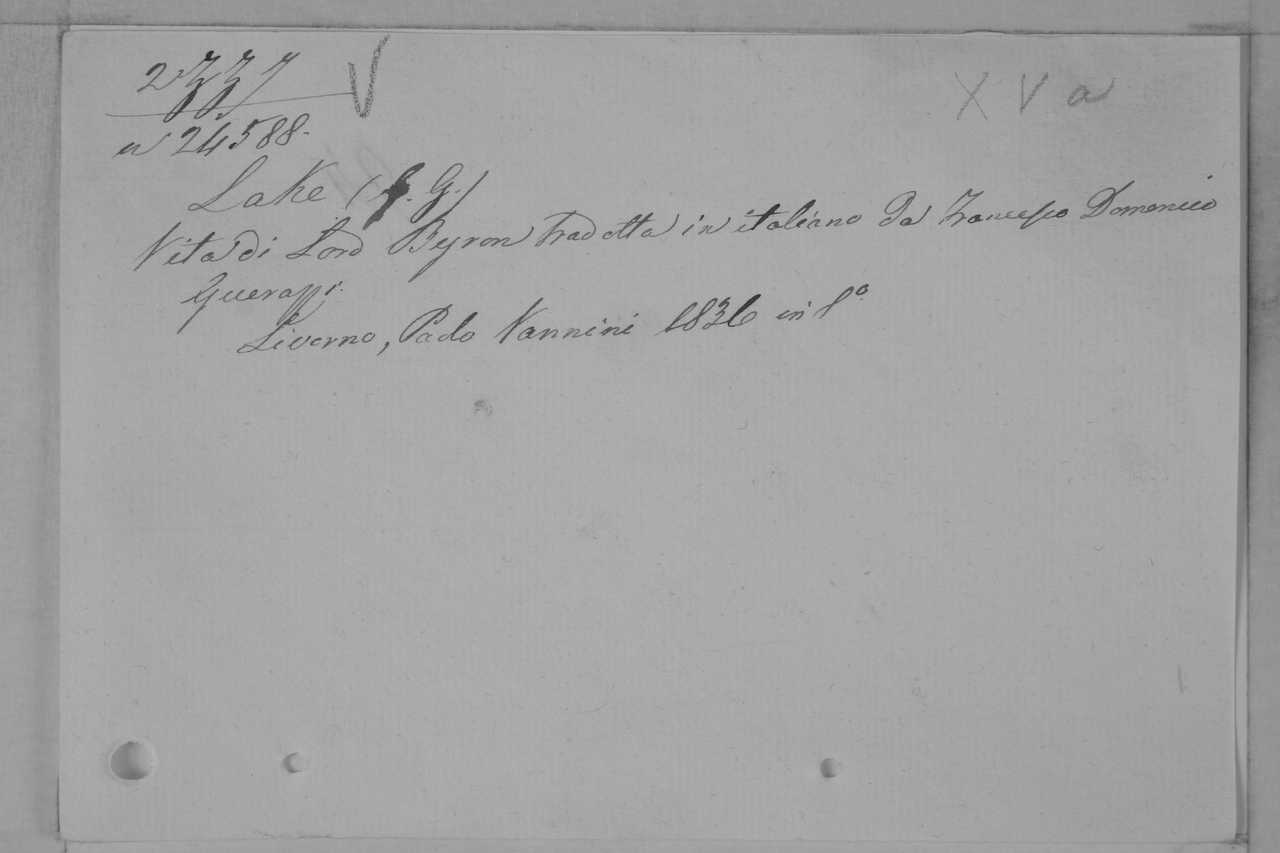 2337 V
XVa
n 24588.
Lake (J. G.)
Vita di Lord Byron tradotta in italiano da Francesco Domenico
Guerazzi.
Livorno, Paolo Vannini 1836 in 8°